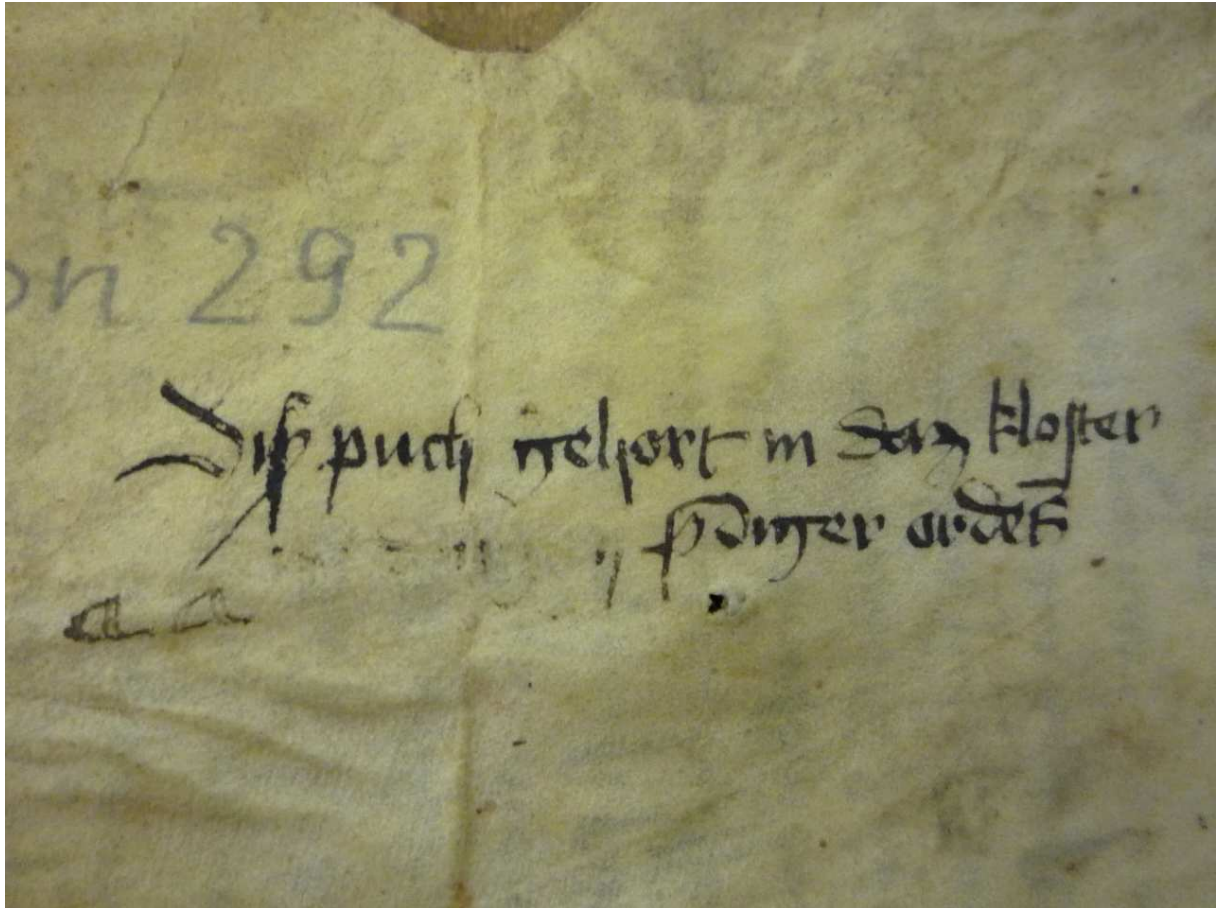 on 292
Diſz puch gehort in daz kloſter
p̄diger ordēs
a a